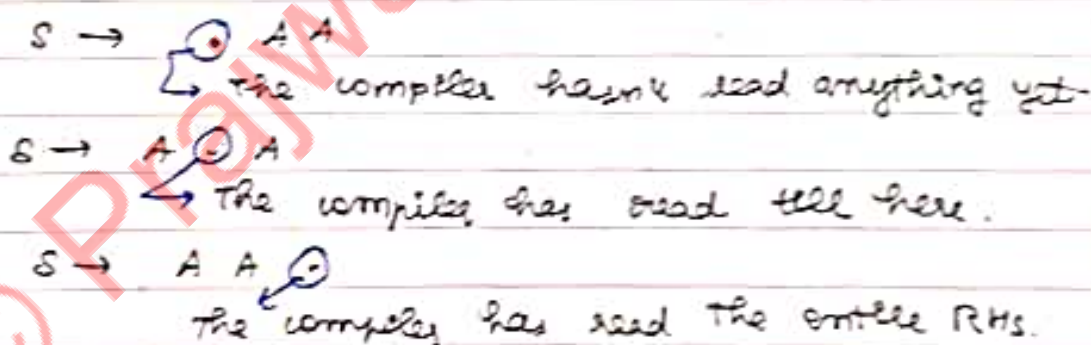 S → . A A
The compiler hasn't read anything yet
S → A . A
The compiler has read till here.
S → A A .
The compiler has read the entire RHS.
© Prajw